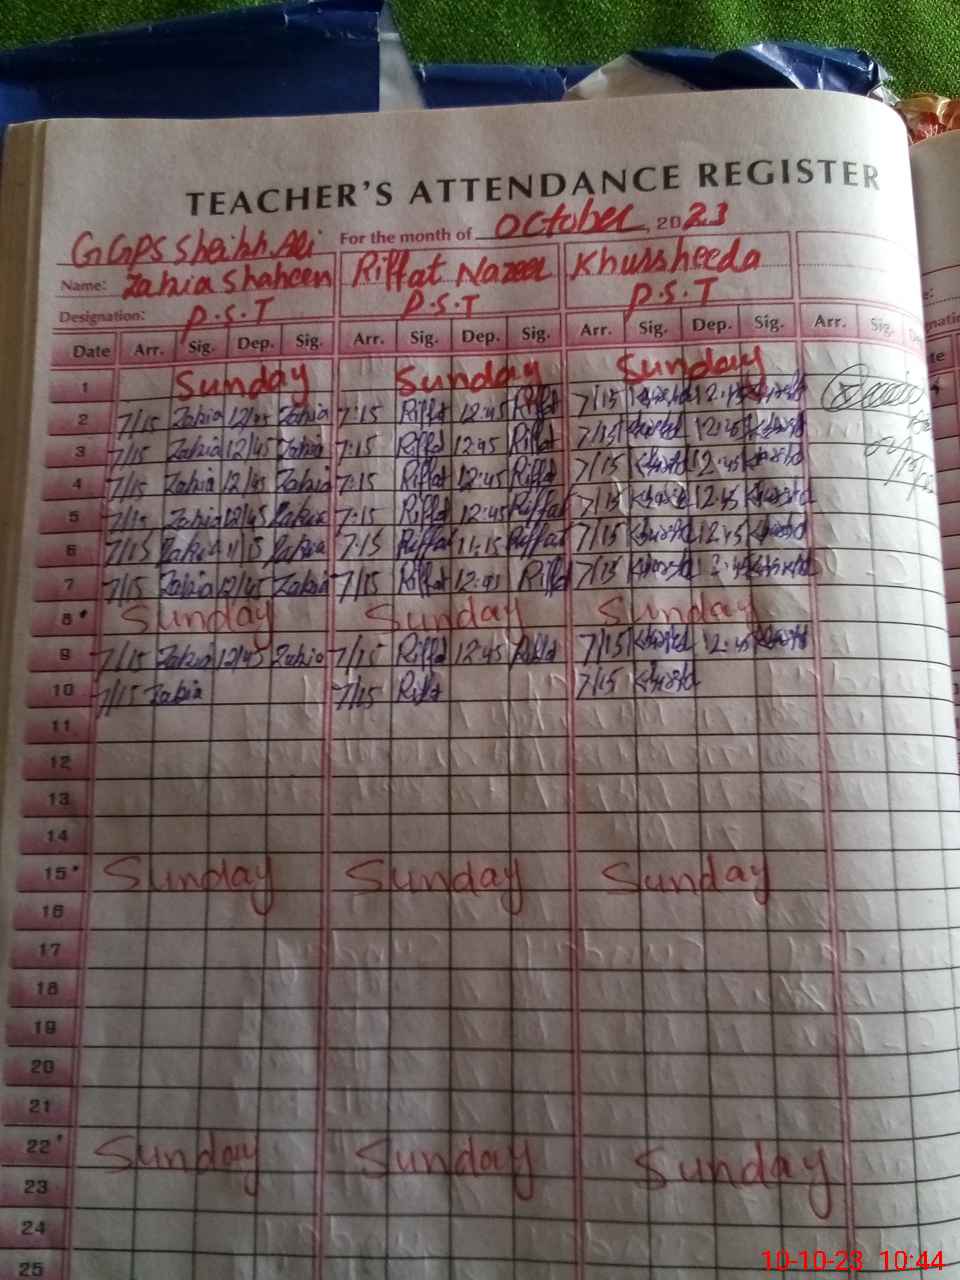 TEACHER'S ATTENDANCE REGISTER
GGPS Sheikh Ali For the month of October, 2023
Name: Zahia Shaheen Riffat Nazeer Khursheeda
Designation: P.S.T P.S.T P.S.T
Date Arr. Sig. Dep. Sig. Arr. Sig. Dep. Sig. Arr. Sig. Dep. Sig. Arr. Sig.
1 Sunday Sunday Sunday
2 7/15 Zahia 12/45 Zahia 7:15 Riffat 12:45 Riffat 7/15 12:45
3 7/15 Zahia 12/45 Zahia 7:15 Riffat 12:45 Riffat 7/15 12:45
4 7/15 Zahia 12/45 Zahia 7:15 Riffat 12:45 Riffat 7/15 12:45
5 7/15 Zahia 12/45 Zahia 7:15 Riffat 12:45 Riffat 7/15 12:45
6 7/15 Zahia 11/15 Zahia 7:15 Riffat 11:15 Riffat 7/15 12:45
7 7/15 Zahia 12/45 Zahia 7/15 Riffat 12:45 Riffat 7/15
8 Sunday Sunday Sunday
9 7/15 Zahia 12/45 Zahia 7/15 Riffat 12:45 Riffat 7/15 12:45
10 7/15 Zahia 7/15 Riffat 7/15
11
12
13
14
15 Sunday Sunday Sunday
16
17
18
19
20
21
22 Sunday Sunday Sunday
23
24
25
10-10-23 10:44